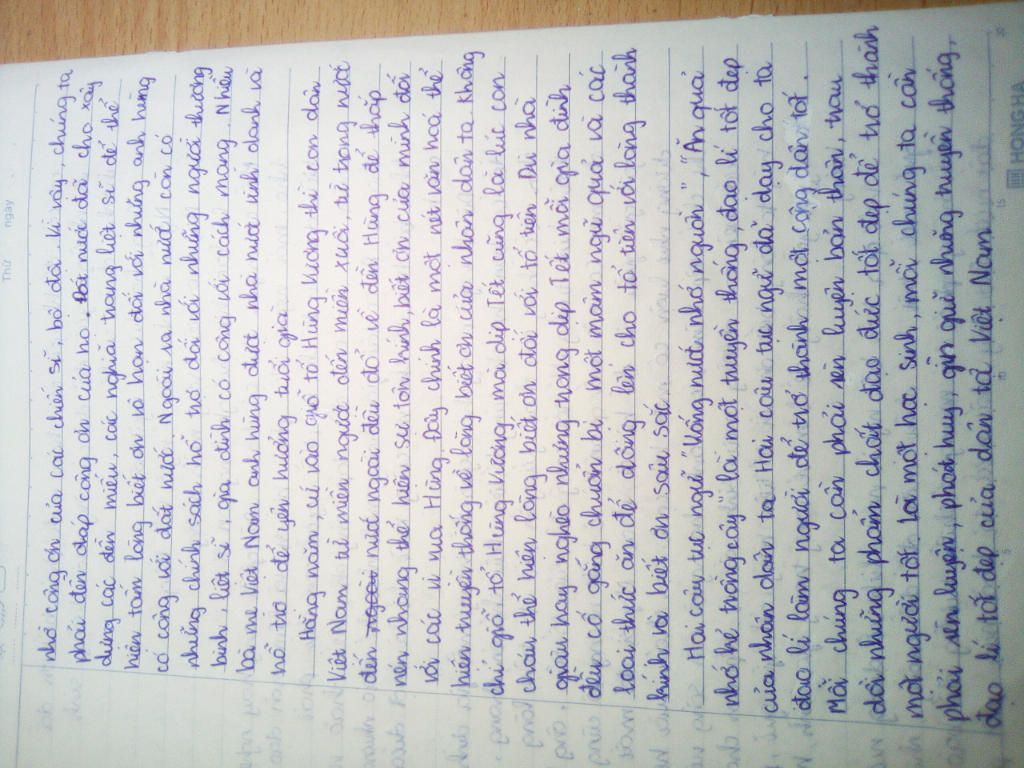 Thứ
ngày
nhớ công ơn của các chiến sĩ, bộ đội. Vì vậy, chúng ta
phải đền đáp công ơn của họ. Đất nước đã cho xây
dựng các đền miếu, các nghĩa trang liệt sĩ để thể
hiện tấm lòng biết ơn vô hạn đối với những anh hùng
có công với đất nước. Ngoài ra nhà nước còn có
những chính sách hỗ trợ đối với những người thương
binh, liệt sĩ, gia đình có công với cách mạng. Nhiều
bà mẹ Việt Nam anh hùng được nhà nước vinh danh và
hỗ trợ để yên hưởng tuổi già
Hằng năm cứ vào giỗ tổ Hùng Vương thì con dân
Việt Nam từ miền ngược đến miền xuôi, từ trong nước
đến nước ngoài đều đổ về đền Hùng để thắp
nén nhang thể hiện sự tôn kính, biết ơn của mình đối
với các vị vua Hùng. Đây chính là một nét văn hoá thể
hiện truyền thống về lòng biết ơn của nhân dân ta. Không
chỉ giỗ tổ Hùng Vương, mà dịp Tết cũng là lúc con
cháu thể hiện lòng biết ơn đối với tổ tiên. Dù nhà
giàu hay nghèo nhưng trong dịp Tết mỗi gia đình
đều cố gắng chuẩn bị một mâm ngũ quả và các
loại thức ăn để dâng lên cho tổ tiên với lòng thành
kính và biết ơn sâu sắc.
Hai câu tục ngữ "Uống nước nhớ nguồn", "Ăn quả
nhớ kẻ trồng cây" là một truyền thống đạo lí tốt đẹp
của nhân dân ta. Hai câu tục ngữ đã dạy cho ta
đạo lí làm người để trở thành một công dân tốt.
Mỗi chúng ta cần phải rèn luyện bản thân, trau
dồi những phẩm chất đạo đức tốt đẹp để trở thành
một người tốt. Là một học sinh, mỗi chúng ta cần
phải rèn luyện, phát huy, gìn giữ những truyền thống,
đạo lí tốt đẹp của dân tộc Việt Nam.
5
10
15
20
HONG HA